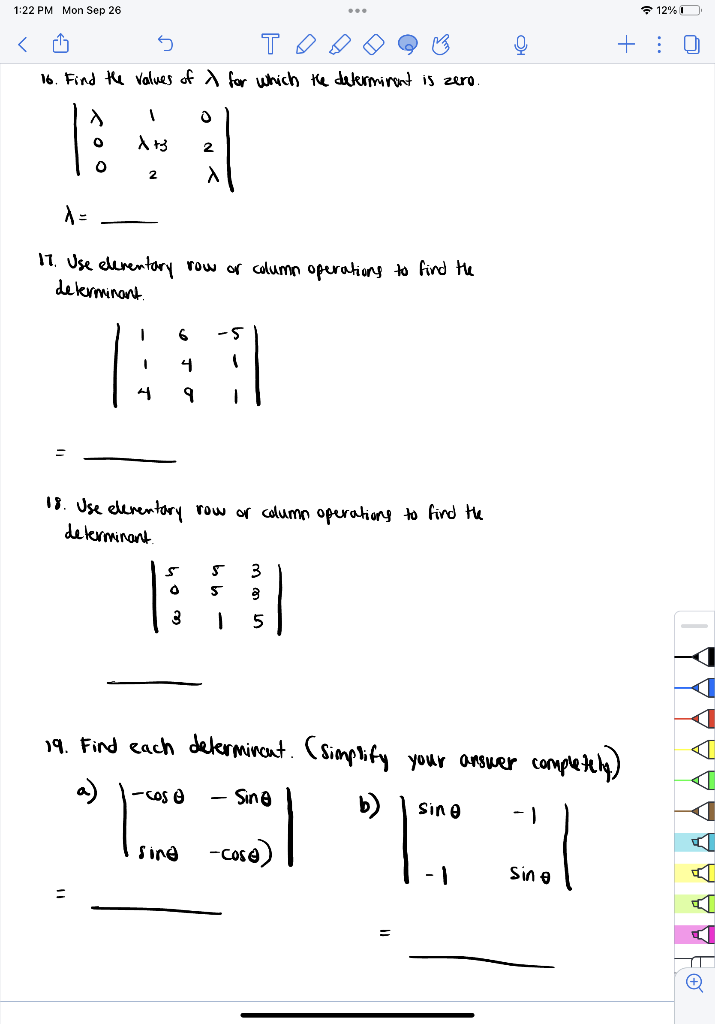 1:22 PM Mon Sep 26
12%
16. Find the values of λ for which the determinant is zero.
λ 1 0
0 λ+3 2
0 2 λ
λ =
17. Use elementary row or column operations to find the
determinant.
1 6 -5
1 4 1
4 9 1
=
18. Use elementary row or column operations to find the
determinant.
5 5 3
0 5 3
3 1 5
19. Find each determinant. (Simplify your answer completely.)
a) -cos θ - sin θ
sin θ -cos θ)
=
b) sin θ -1
-1 sin θ
=